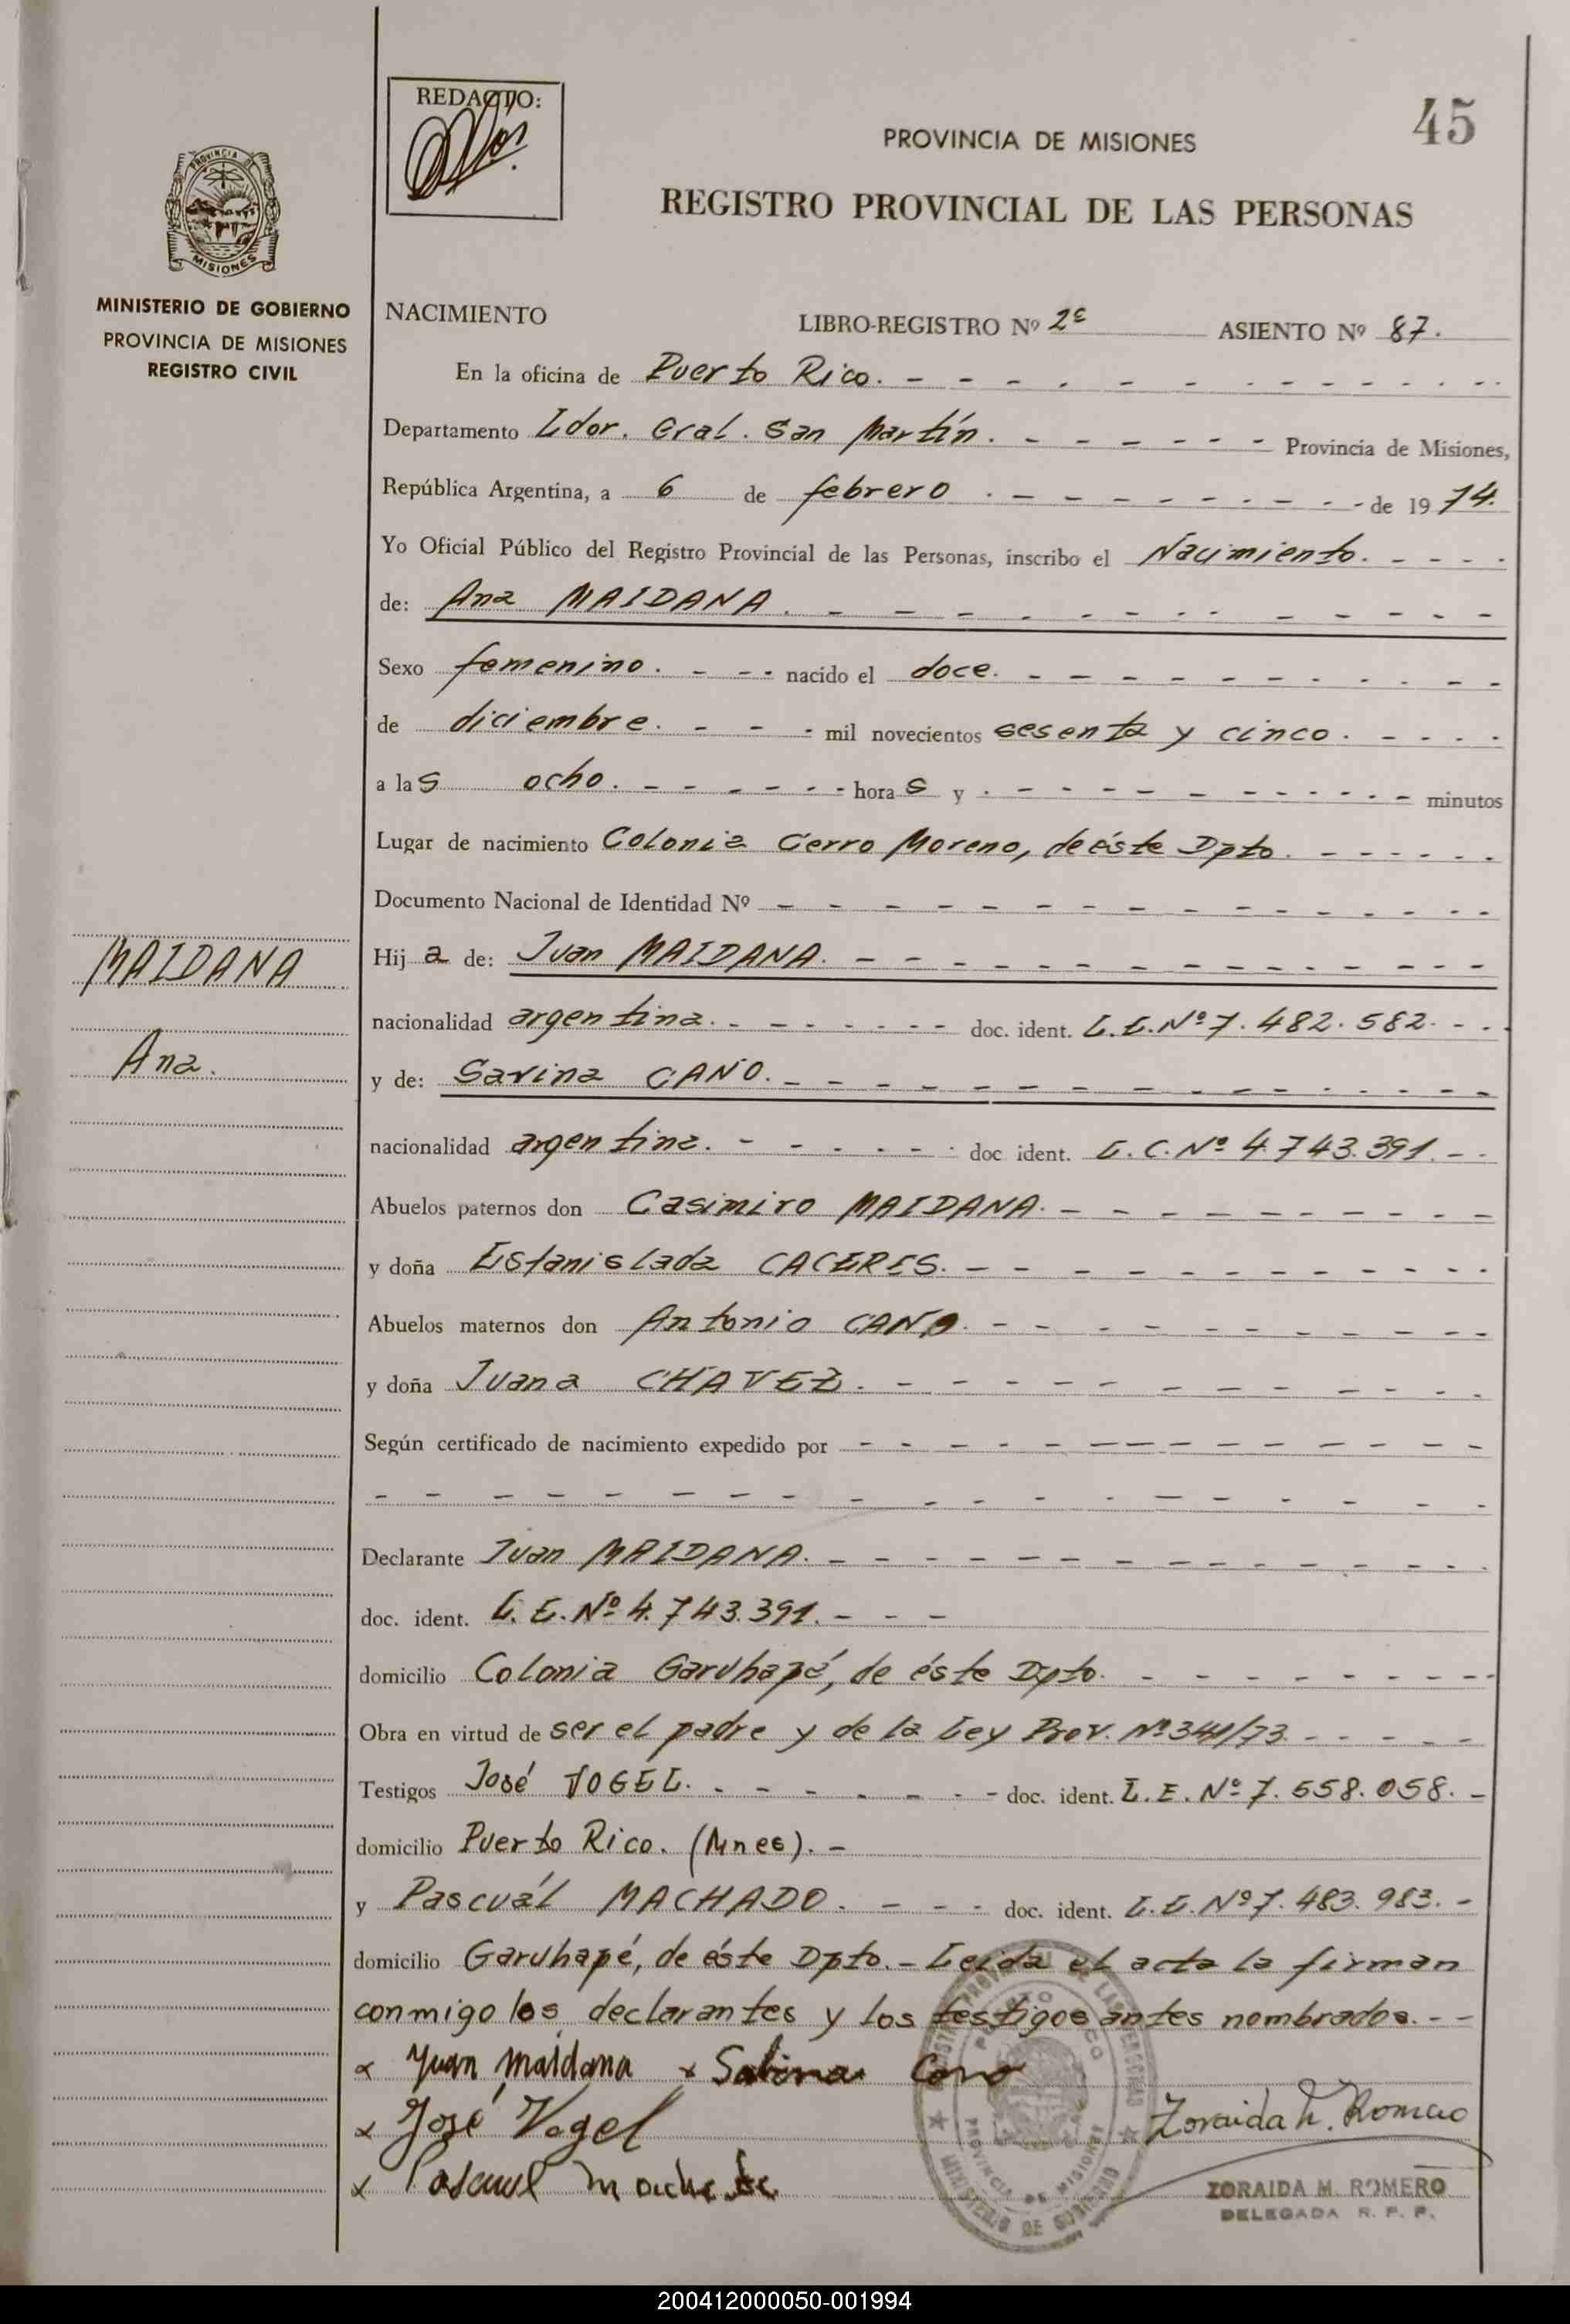 REDACTO:
45
PROVINCIA DE MISIONES
REGISTRO PROVINCIAL DE LAS PERSONAS
PROVINCIA DE
MISIONES
MINISTERIO DE GOBIERNO
PROVINCIA DE MISIONES
REGISTRO CIVIL
NACIMIENTO LIBRO-REGISTRO Nº 2º ASIENTO Nº 87.
En la oficina de Puerto Rico.
Departamento Ldor. Gral. San Martín. Provincia de Misiones,
República Argentina, a 6 de febrero. de 1974.
Yo Oficial Público del Registro Provincial de las Personas, inscribo el Nacimiento.
de: Ana MAIDANA.
Sexo femenino. nacido el doce.
de diciembre. mil novecientos sesenta y cinco.
a las ocho. horas y . minutos
Lugar de nacimiento Colonia Cerro Moreno, de éste Dpto.
Documento Nacional de Identidad Nº
MAIDANA
Ana.
Hija de: Juan MAIDANA.
nacionalidad argentina. doc. ident. L.E.Nº 7.482.582.
y de: Savina CANO.
nacionalidad argentina. doc ident. L.C.Nº 4.743.391.
Abuelos paternos don Casimiro MAIDANA.
y doña Estanislada CACERES.
Abuelos maternos don Antonio CANO.
y doña Juana CHAVEZ.
Según certificado de nacimiento expedido por
Declarante Juan MAIDANA.
doc. ident. L.E.Nº 4.743.391.
domicilio Colonia Garuhapé, de éste Dpto.
Obra en virtud de ser el padre y de la Ley Prov. Nº 341/73.
Testigos José VOGEL. doc. ident. L.E.Nº 7.558.058.
domicilio Puerto Rico. (Mnes).
y Pascuál MACHADO. doc. ident. L.E.Nº 7.483.983.
domicilio Garuhapé, de éste Dpto.- Leida el acta la firman
conmigo los declarantes y los testigos antes nombrados.
x Juan maidana x Sabina Cano
x José Vogel Zoraida M. Romero
x Pascual
ZORAIDA M. ROMERO
DELEGADA R. P. P.
PUERTO RICO
PROVINCIA DE MISIONES
MINISTERIO DE GOBIERNO
200412000050-001994